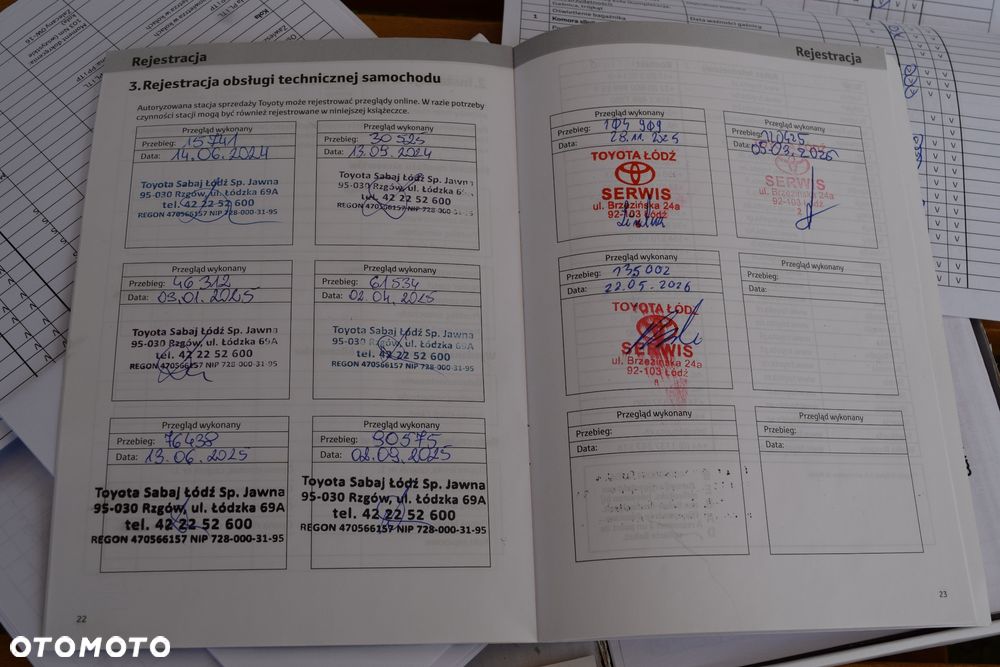 Rejestracja
3.Rejestracja obsługi technicznej samochodu
Autoryzowana stacja sprzedaży Toyoty może rejestrować przeglądy online. W razie potrzeby
czynności stacji mogą być również rejestrowane w niniejszej książeczce.
Przegląd wykonany
Przebieg: 15741
Data: 14.06.2024
Toyota Sabaj Łódź Sp. Jawna
95-030 Rzgów, ul. Łódzka 69A
tel. 42 22 52 600
REGON 470566157 NIP 728-000-31-95
Przegląd wykonany
Przebieg: 30525
Data: 13.05.2024
Toyota Sabaj Łódź Sp. Jawna
95-030 Rzgów, ul. Łódzka 6
tel. 42 22 52 600
REGON 470566157 NIP 728-000-31-95
Przegląd wykonany
Przebieg: 46312
Data: 03.01.2025
Toyota Sabaj Łódź Sp. Jawna
95-030 Rzgów, ul. Łódzka 69A
tel. 42 22 52 600
REGON 470566157 NIP 728-000-31-95
Przegląd wykonany
Przebieg: 61534
Data: 02.04.2025
Toyota Sabaj Łódź Sp. Jawna
95-030 Rzgów, ul. Łódzka 69A
tel. 42 22 52 600
REGON 470566157 NIP 728-000-31-95
Przegląd wykonany
Przebieg: 76438
Data: 13.06.2025
Toyota Sabaj Łódź Sp. Jawna
95-030 Rzgów, ul. Łódzka 69A
tel. 42 22 52 600
REGON 470566157 NIP 728-000-31-95
Przegląd wykonany
Przebieg: 90575
Data: 02.09.2025
Toyota Sabaj Łódź Sp. Jawna
95-030 Rzgów, ul. Łódzka 69A
tel. 42 22 52 600
REGON 470566157 NIP 728-000-31-95
22
Rejestracja
Przegląd wykonany
Przebieg: 104 909
Data: 28.11.2025
TOYOTA ŁÓDŹ
SERWIS
ul. Brzezińska 24a
92-103 Łódź
Przegląd wykonany
Przebieg: 120425
Data: 05.03.2026
SERWIS
ul. Brzezińska 24a
92-103 Łódź
2
Przegląd wykonany
Przebieg: 135002
Data: 22.05.2026
TOYOTA ŁÓDŹ
SERWIS
ul. Brzezińska 24a
92-103 Łódź
Przegląd wykonany
Przebieg:
Data:
Przegląd wykonany
Przebieg:
Data:
Przegląd wykonany
Przebieg:
Data:
23
Oświetlenie bagażnika
1 Komora
Data ważności gaśnicy
OTOMOTO